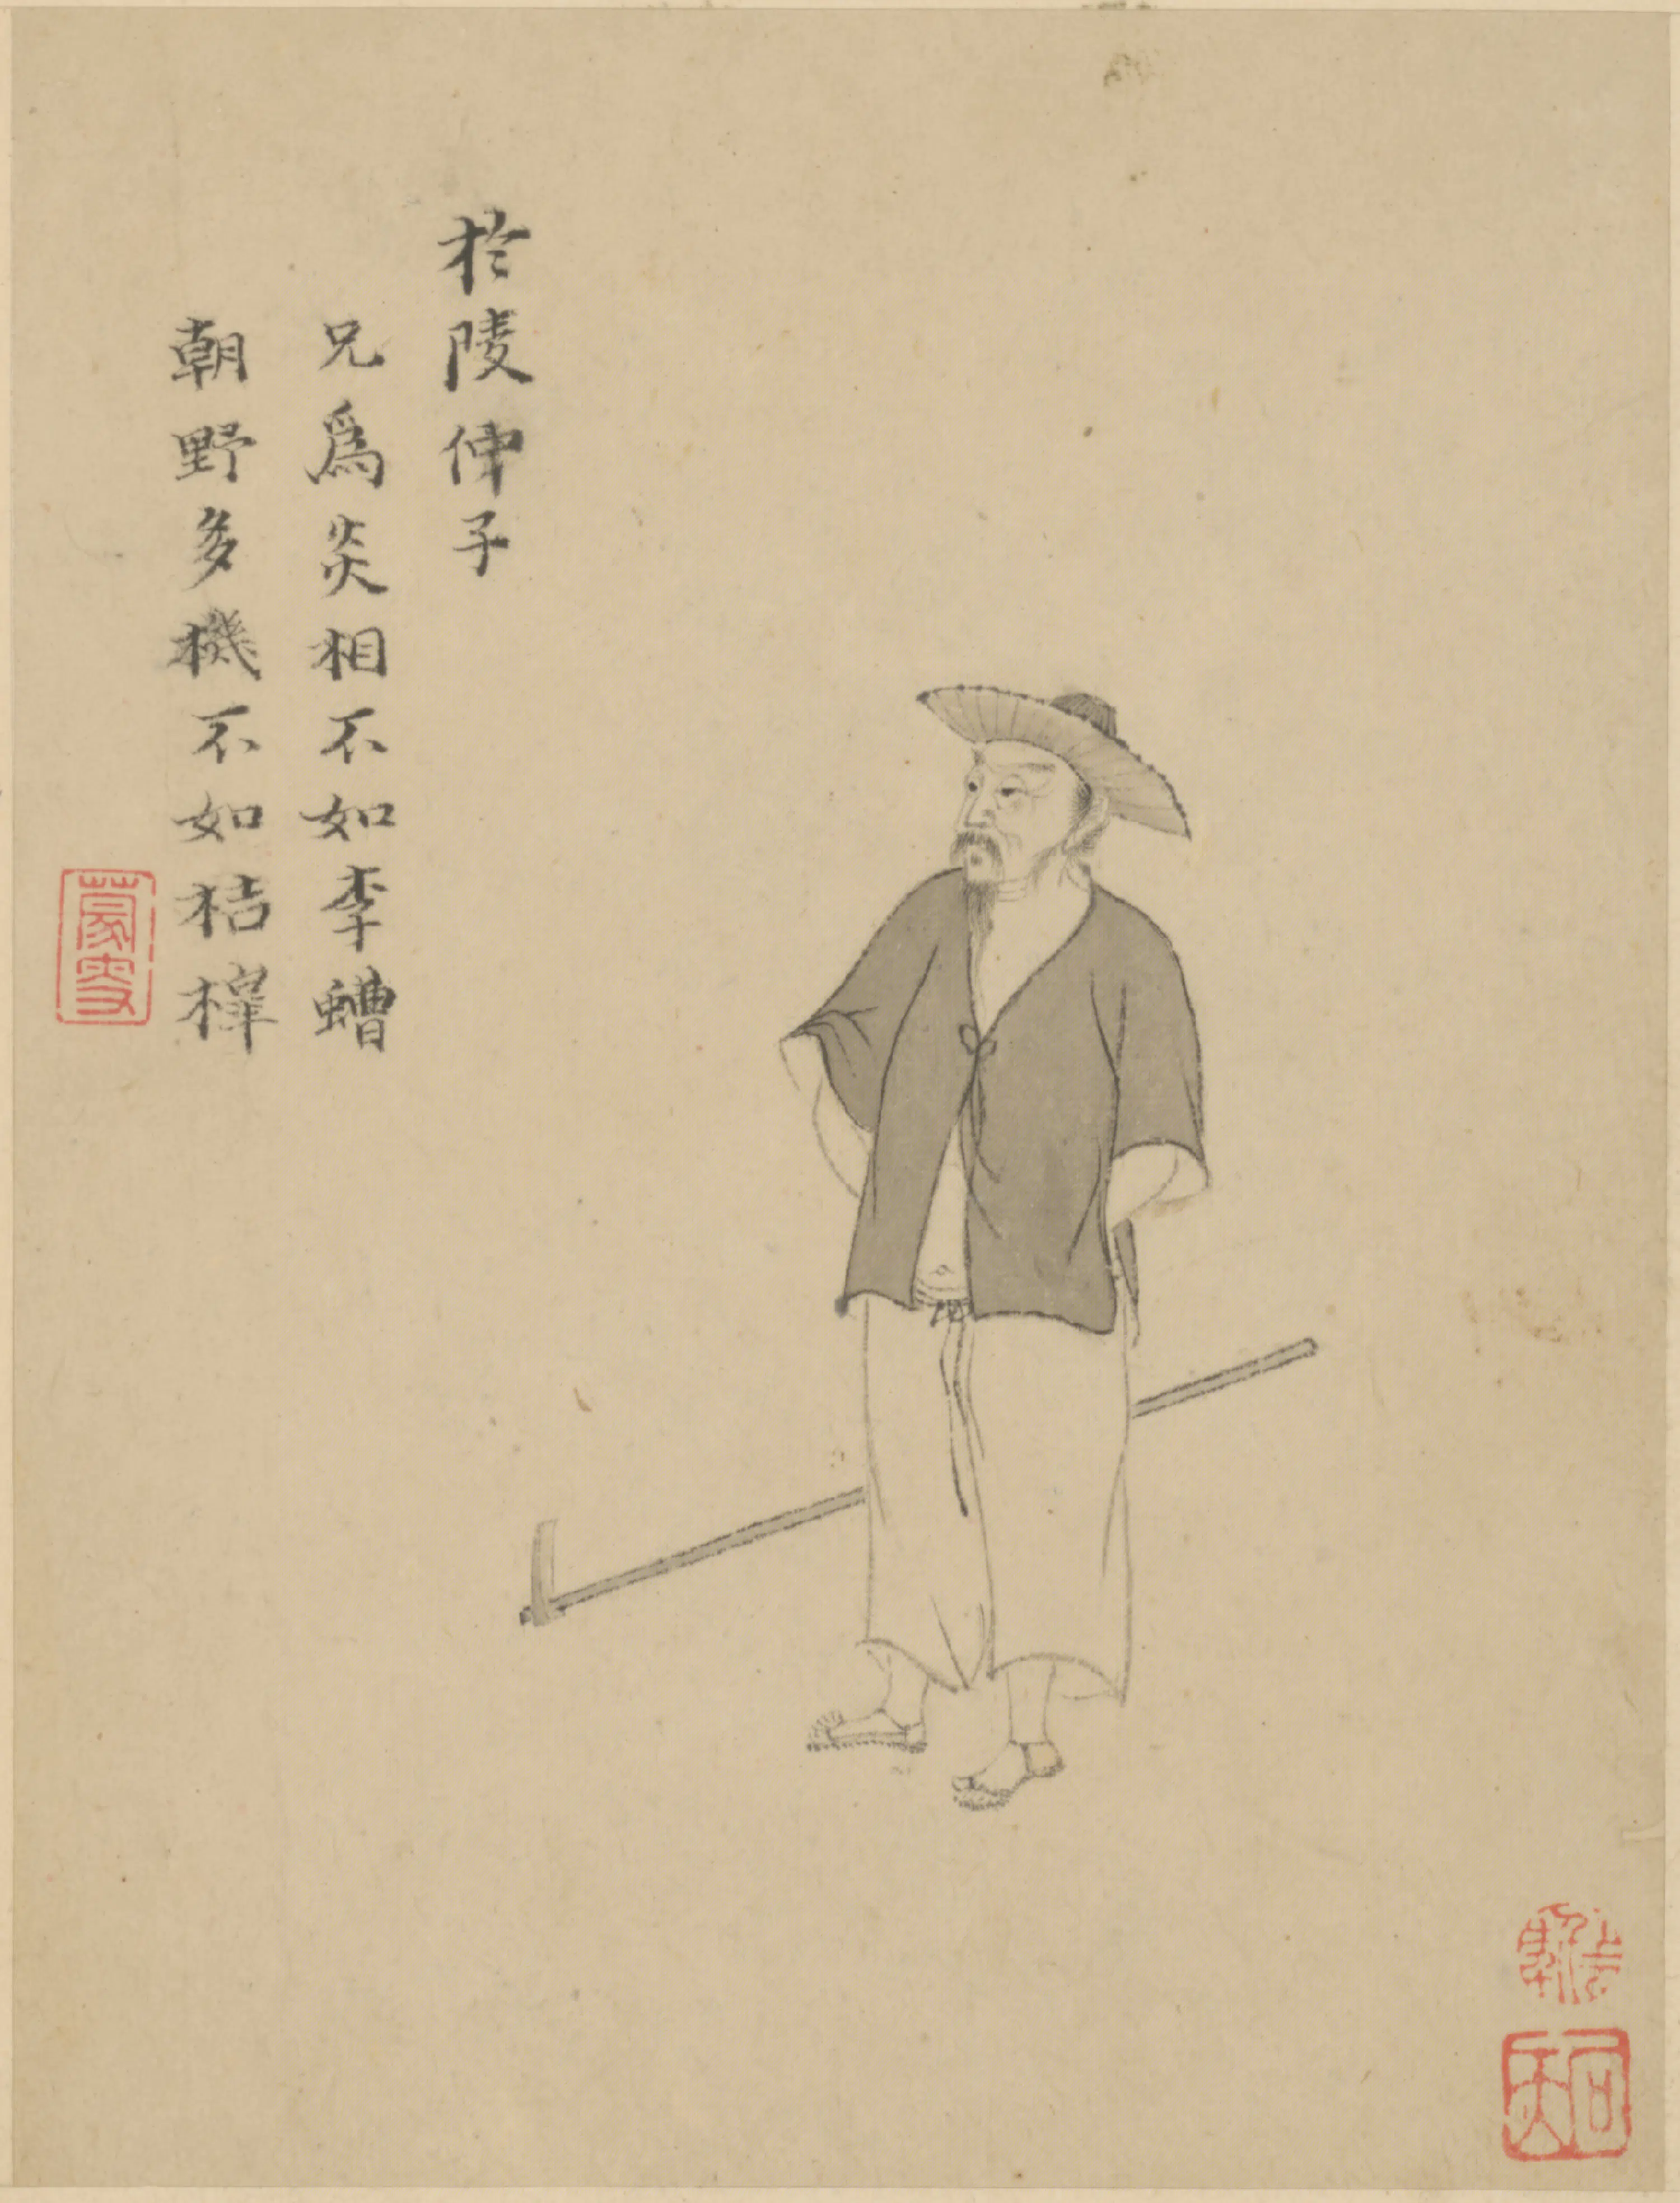 於陵仲子
兄為炎相不如李螬
朝野多機不如桔槹